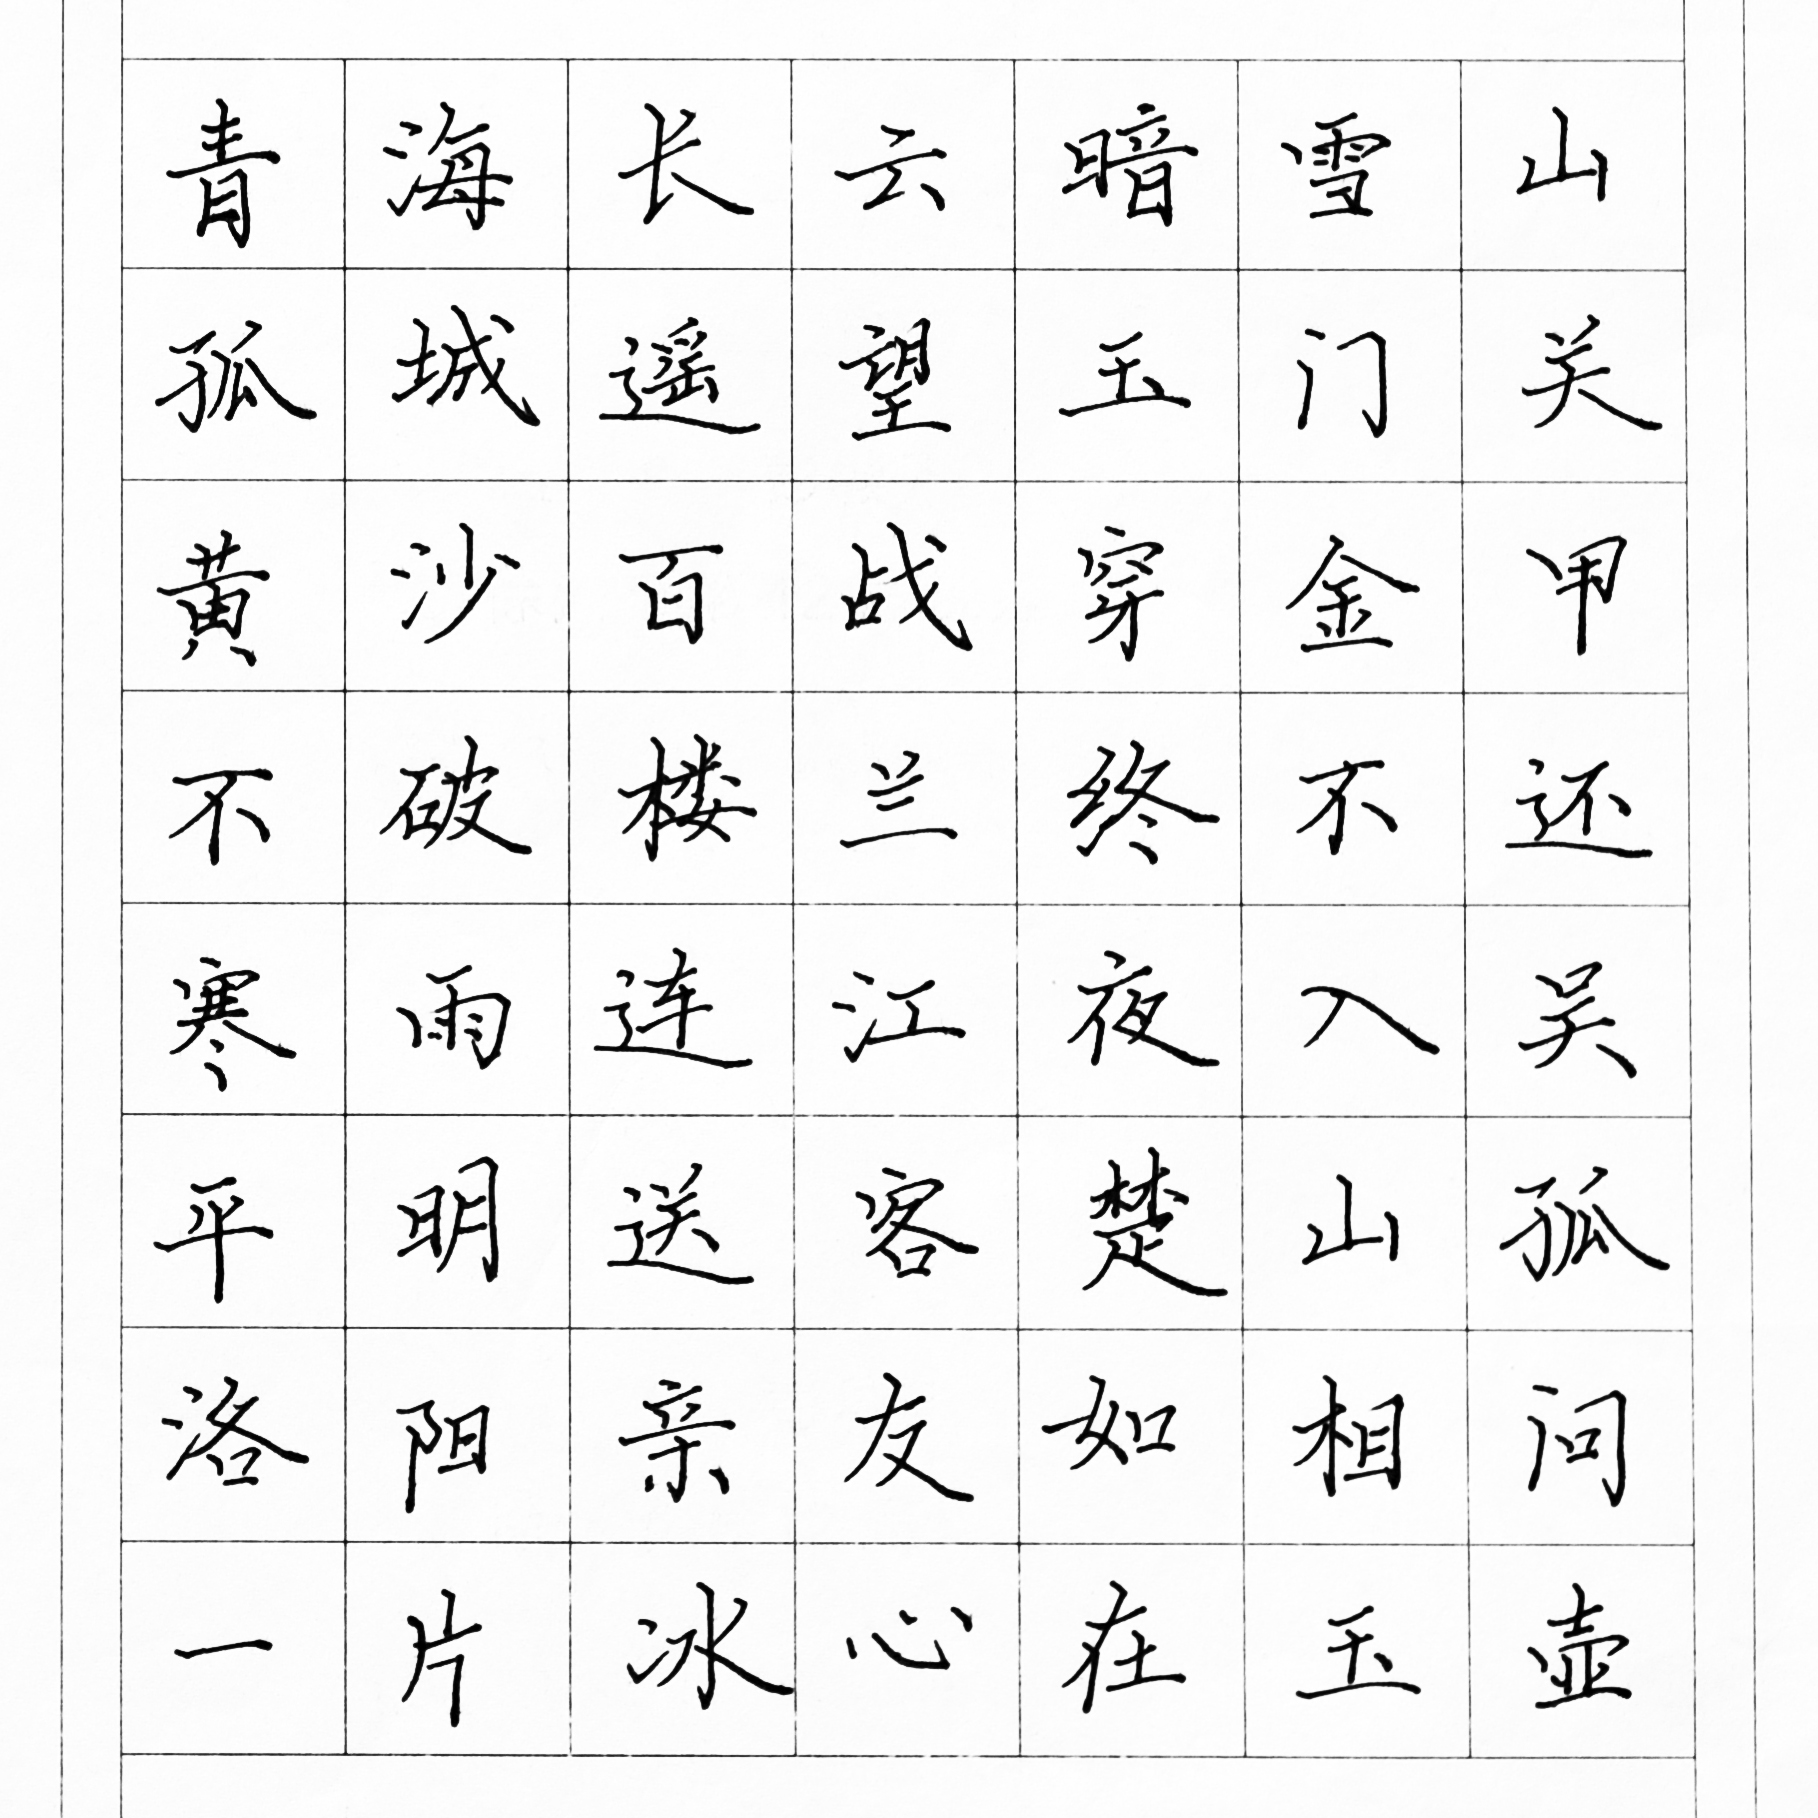 青海长云暗雪山
孤城遥望玉门关
黄沙百战穿金甲
不破楼兰终不还
寒雨连江夜入吴
平明送客楚山孤
洛阳亲友如相问
一片冰心在玉壶